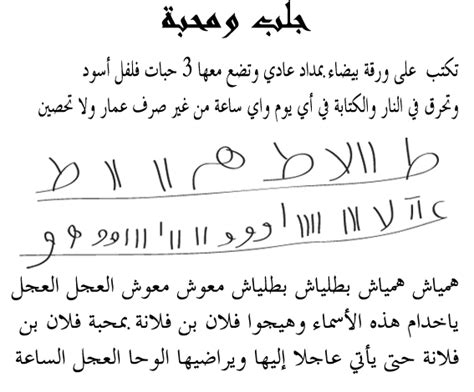 جلب ومحبة
تكتب على ورقة بيضاء بمداد عادي وتضع معها 3 حبات فلفل أسود
وتحرق في النار والكتابة في أي يوم واي ساعة من غير صرف عمار ولا تحصين
همياش همياش بطلياش بطلياش معوش معوش العجل العجل
ياخدام هذه الأسماء وهيجوا فلان بن فلانة بمحبة فلان بن
فلانة حتى يأتي عاجلا إليها ويراضيها الوحا العجل الساعة